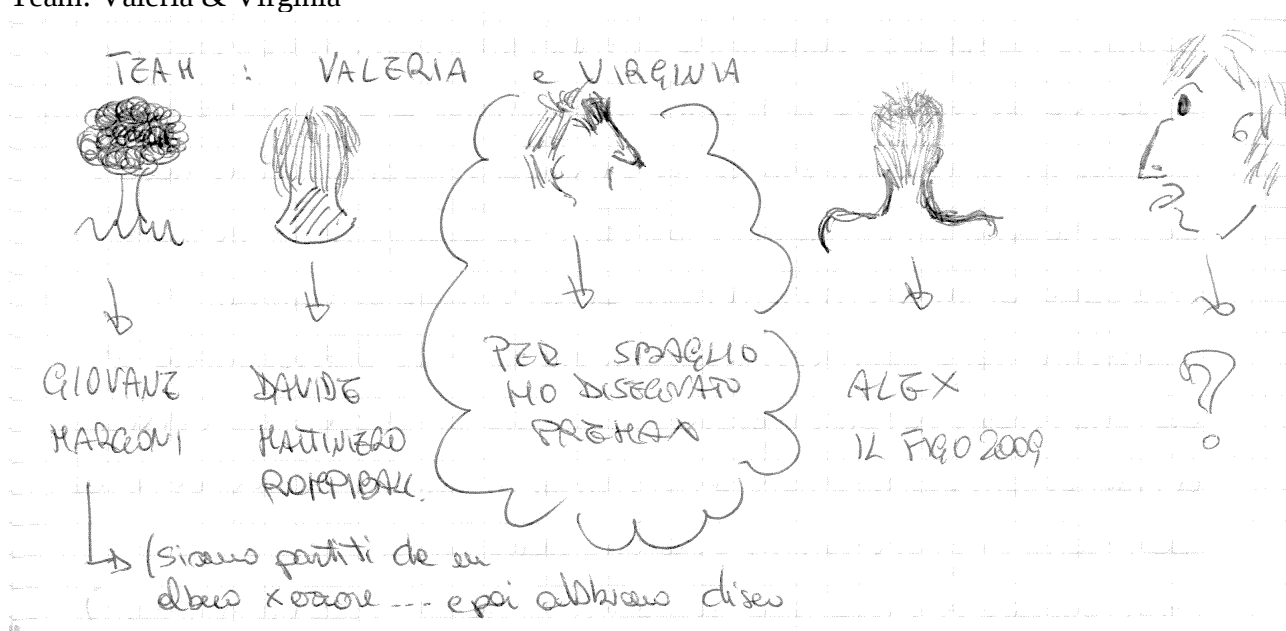 Team: Valeria & Virginia
TEAM : VALERIA e VIRGINIA
GIOVANE
MARCONI
DAVIDE
MATTINIERO
ROMPIBALL.
PER SBAGLIO
HO DISEGNATO
PREMAX
ALEX
IL FIGO 2009
?
(siamo partiti da un
albero x errore --- e poi abbiamo disen